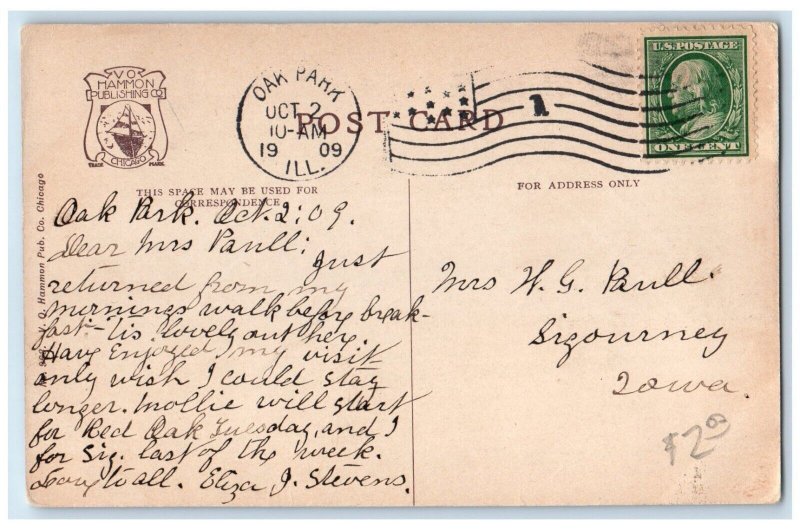 V.O.
HAMMON
PUBLISHING CO.
CHICAGO
TRADE MARK
OAK PARK
OCT 2
10-AM
19 09
ILL.
1
POST CARD
U.S. POSTAGE
ONE CENT
THIS SPACE MAY BE USED FOR
CORRESPONDENCE
FOR ADDRESS ONLY
V. O. Hammon Pub. Co. Chicago
Oak Park. Oct. 2; 09.
Dear Mrs Paull; Just
returned from my
mornings walk before break-
fast - tis lovely out here
Have Enjoyed my visit
only wish I could stay
longer. Mollie will start
for Red Oak Tuesday, and I
for Sig. last of the week.
Love to all. Eliza J. Stevens.
Mrs W. G. Paull.
Sigourney
Iowa.
$2.00